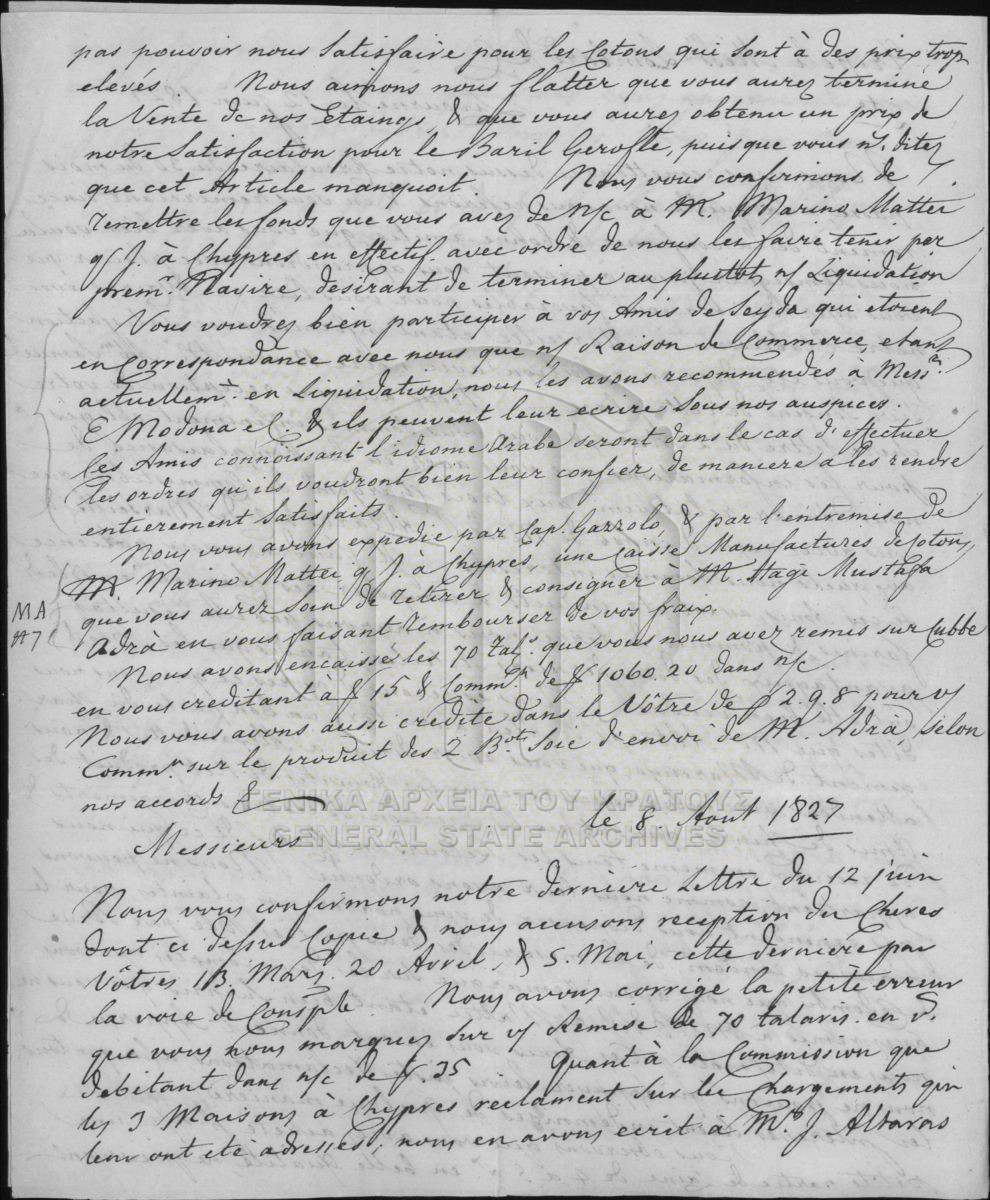 pas pouvoir nous Satisfaire pour les Cotons qui Sont à des prix trop
elevés. Nous aimons nous flatter que vous aurez terminé
la Vente de nos Etaings, & que vous aurez obtenu un prix de
notre Satisfaction pour le Baril Gerofle, puisque vous ns. ditez
que cet Article manquoit. Nous vous confirmons de
remettre les fonds que vous avez de n/c à M. Marino Mattei
q J. à Chypres en effectif avec ordre de nous les faire tenir per
premr. Navire, desirant de terminer au plustot n/ Liquidation
Vous voudrez bien participer à vos Amis de Seyda qui etoient
en Correspondance avec nous que n/ Raison de Commerce, etant
actuellemt. en Liquidation, nous les avons recommendés à Messrs.
E Modona e C. & ils peuvent leur ecrire Sous nos auspices.
Ces Amis connoissant l'idiome Arabe seront dans le cas d'effectuer
les ordres qu'ils voudront bien leur confier, de maniere a les rendre
entierement Satisfaits.
Nous vous avons expedié par Cap. Gazzolo, & par l'entremise de
M. Marino Mattei q J. à Chypres, une Caisse Manufactures de Coton,
MA
#7
que vous aurez Soin de retirer & consigner à M. Hagi Mustafa
Adrà en vous faisant rembourser de vos fraix.
Nous avons encaissé les 70 tals. que vous nous avez remis sur Cubbe
en vous creditant à £ 15 & Commn. de £ 1060.20 dans n/c.
Nous vous avons aussi credité dans le Vôtre de p 2.9.8 pour v/
Commn. sur le produit des 2 Bot. Soie d'envoi de M. Adrà, selon
nos accords &
ΓΕΝΙΚΑ ΑΡΧΕΙΑ ΤΟΥ ΚΡΑΤΟΥΣ
GENERAL STATE ARCHIVES
le 8 Aout 1827
Messieurs
Nous vous confirmons notre derniere Lettre du 12 juin
dont ci dessus Copie & nous accusons reception du Cheres
Vôtres 13. Mars. 20 Avril, & 5. Mai, cette derniere par
la voie de Consple. Nous avons corrigé la petite erreur
que vous nous marquez Sur v/ Remise de 70 talaris. en vs.
debitant dans n/c de £.35 Quant à la Commission que
les 3 Maisons à Chypres reclament sur les Chargements qui
leur ont eté adressés, nous en avons ecrit à Mr. J. Altaras